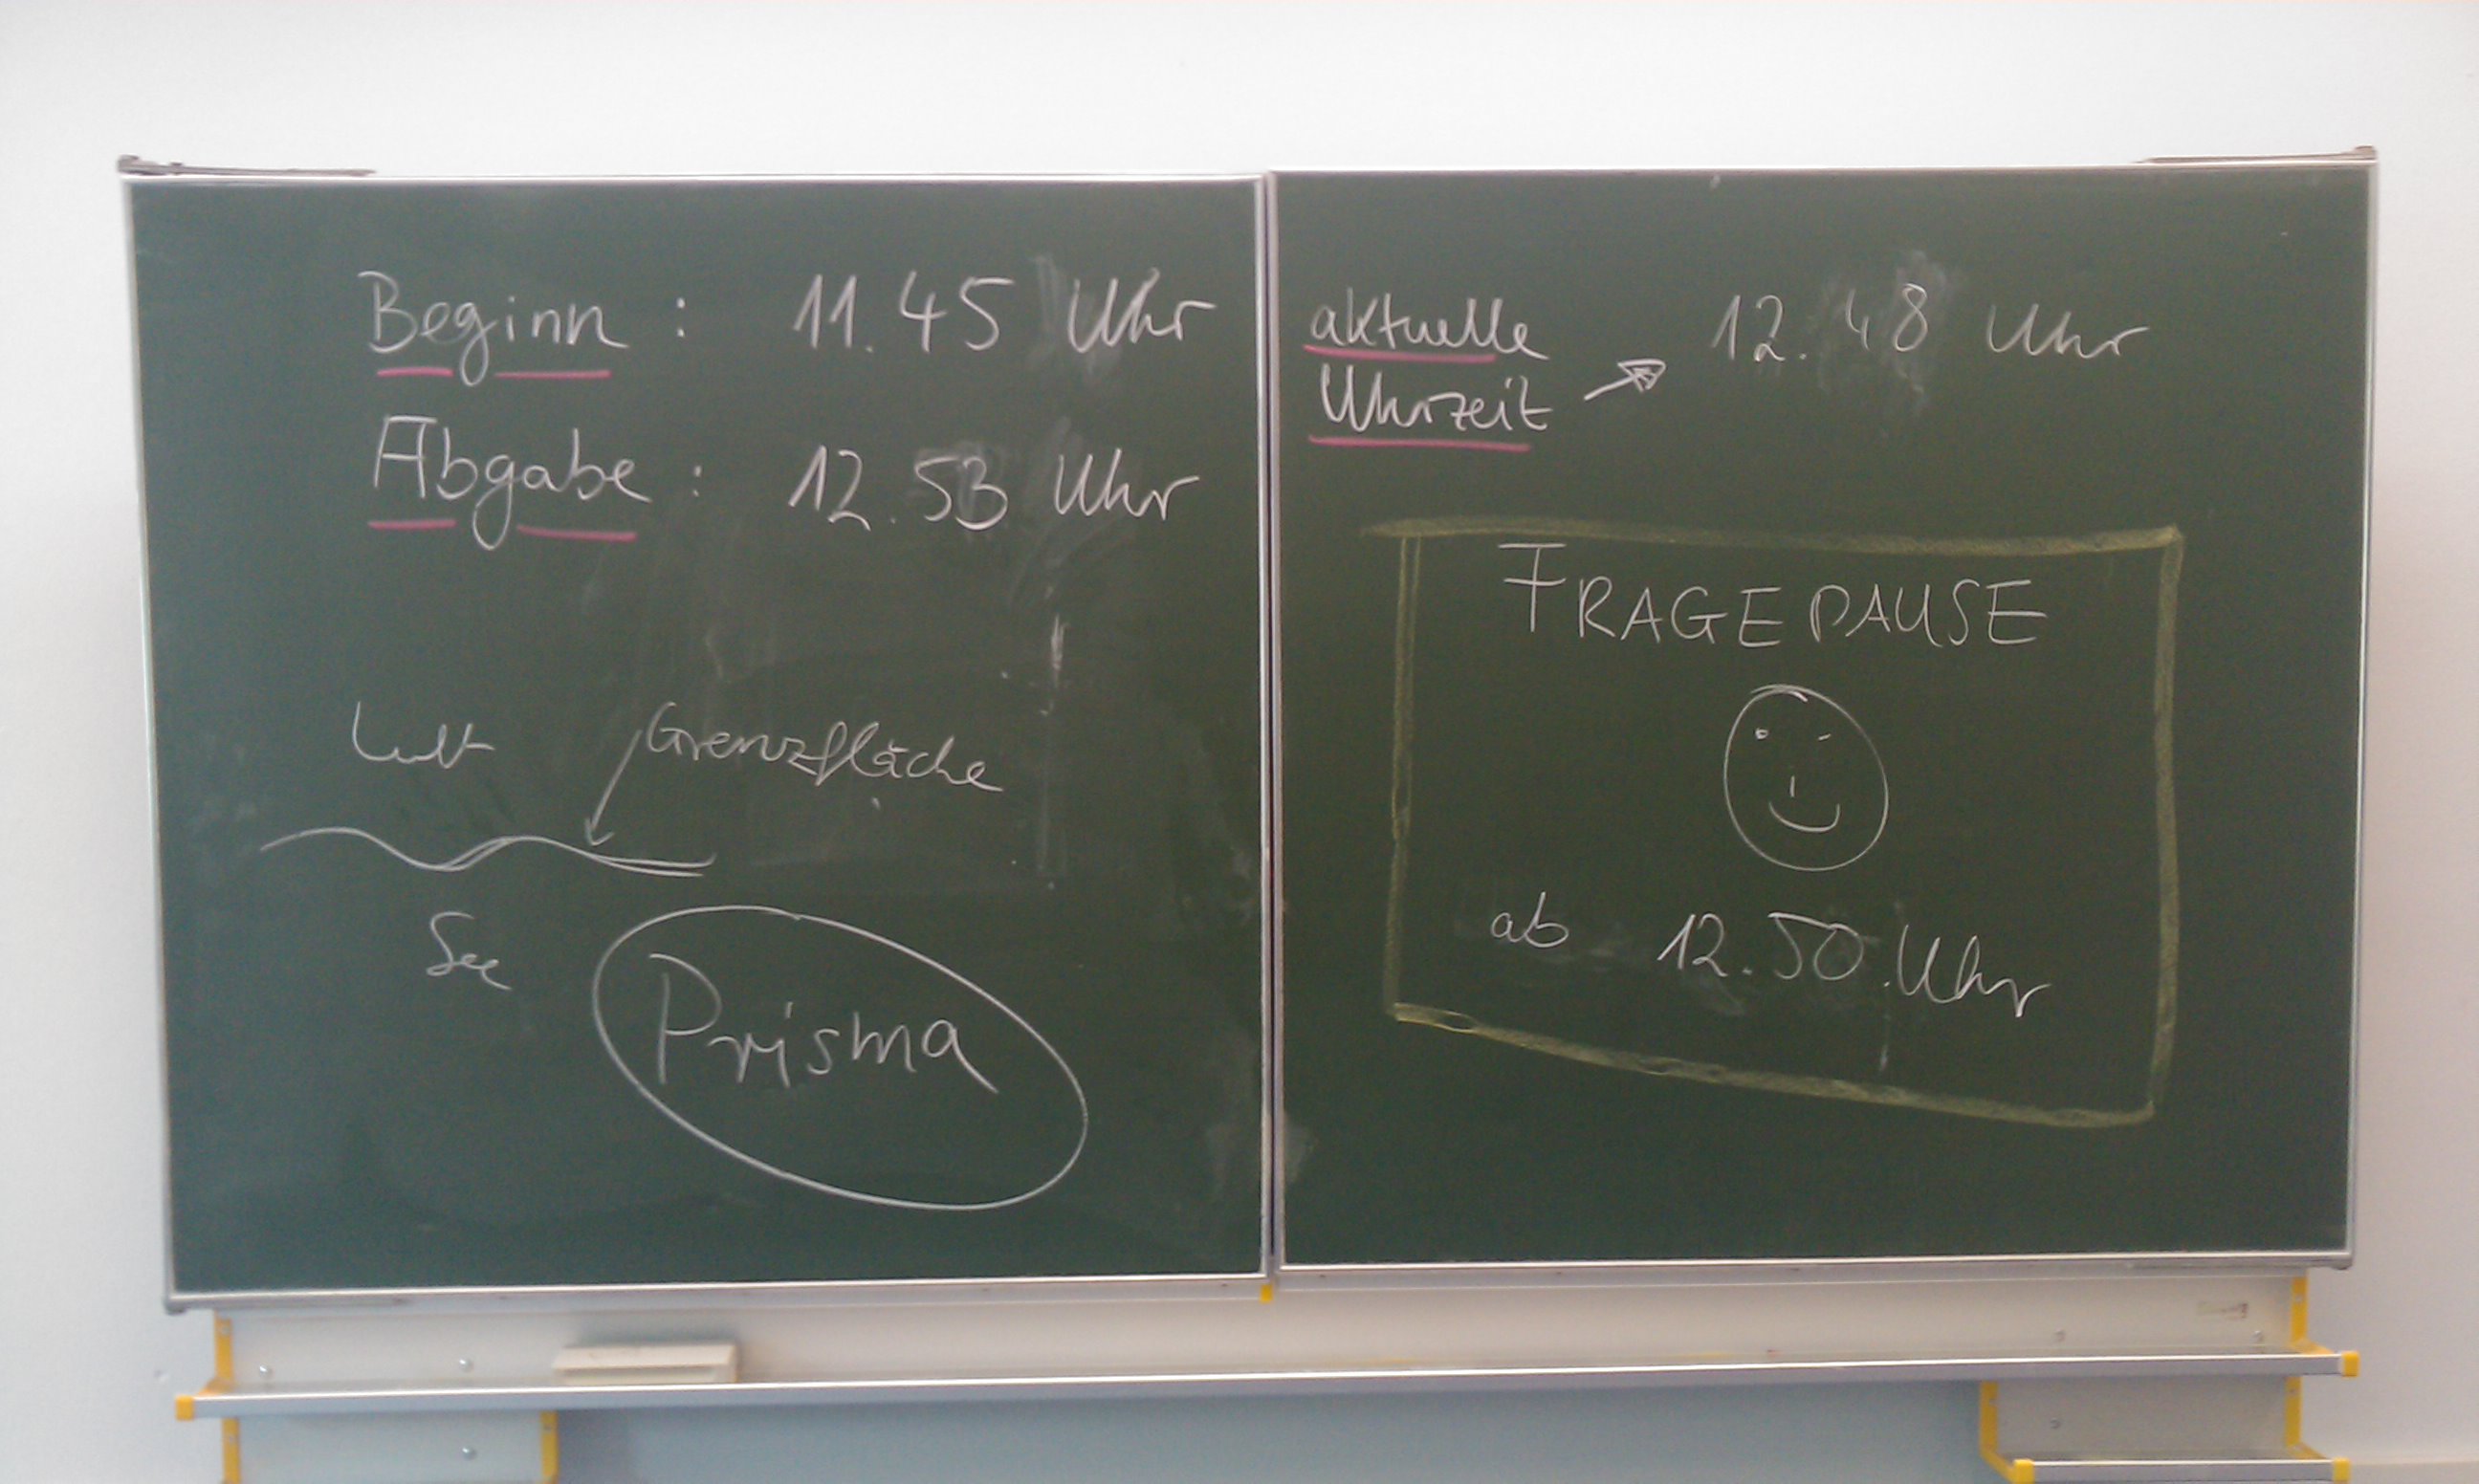 Beginn : 11.45 Uhr
Abgabe : 12.53 Uhr
Luft
Grenzfläche
See
Prisma
aktuelle
Uhrzeit
12.48 Uhr
FRAGEPAUSE
ab 12.50 Uhr